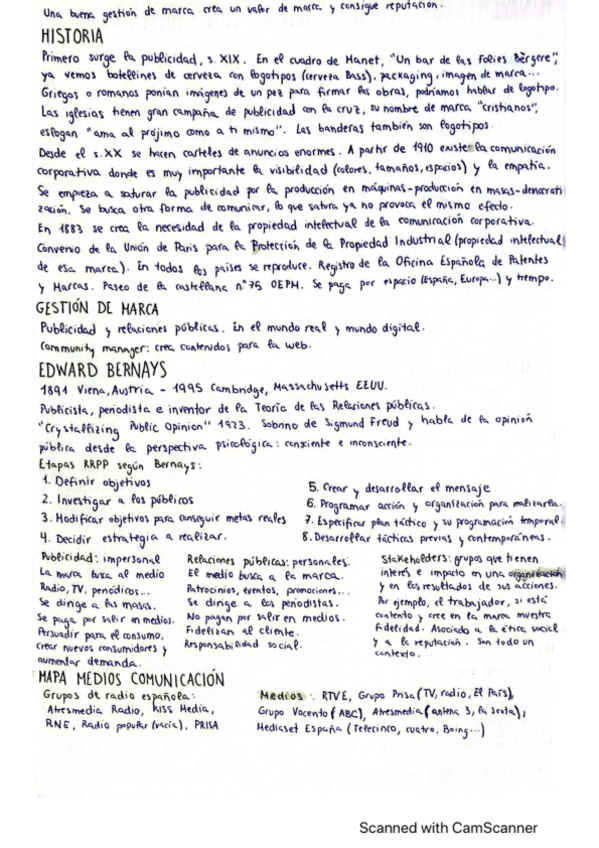 Una buena gestión de marca crea un valor de marca y consigue reputación.
HISTORIA
Primero surge la publicidad, s. XIX. En el cuadro de Manet, "Un bar de las Folies Bèrgere",
ya vemos botellines de cerveza con logotipos (cerveza Bass), packaging, imagen de marca...
Griegos o romanos ponían imágenes de un pez para firmar las obras, podríamos hablar de logotipo.
Las iglesias tienen gran campaña de publicidad con la cruz, su nombre de marca "cristianos",
eslogan "ama al prójimo como a ti mismo". Las banderas también son logotipos.
Desde el s.XX se hacen carteles de anuncios enormes. A partir de 1910 existe la comunicación
corporativa donde es muy importante la visibilidad (colores, tamaños, espacios) y la empatía.
Se empieza a saturar la publicidad por la producción en máquinas-producción en masas-democrati
zación. Se busca otra forma de comunicar, lo que satura ya no provoca el mismo efecto.
En 1883 se crea la necesidad de la propiedad intelectual de la comunicación corporativa.
Convenio de la Unión de París para la Protección de la Propiedad Industrial (propiedad intelectual
de esa marca). En todos los países se reproduce. Registro de la Oficina Española de Patentes
y Marcas. Paseo de la castellana nº 75 OEPM. Se paga por espacio (España, Europa...) y tiempo.
GESTIÓN DE MARCA
Publicidad y relaciones públicas. En el mundo real y mundo digital.
Community manager: crea contenidos para la web.
EDWARD BERNAYS
1891 Viena, Austria - 1995 Cambridge, Massachusetts EEUU.
Publicista, periodista e inventor de la Teoría de las Relaciones públicas.
"Crystallizing Public Opinion" 1923. Sobrino de Sigmund Freud y habla de la opinión
pública desde la perspectiva psicológica: consciente e inconsciente.
Etapas RRPP según Bernays:
1. Definir objetivos
2. Investigar a los públicos
3. Modificar objetivos para conseguir metas reales
4. Decidir estrategia a realizar.
5. Crear y desarrollar el mensaje
6. Programar acción y organización para realizarla.
7. Especificar plan táctico y su programación temporal
8. Desarrollar tácticas previas y contemporáneas.
Publicidad: impersonal
La marca busca al medio
Radio, TV, periódicos...
Se dirige a las masas.
Se paga por salir en medios.
Persuadir para el consumo,
crear nuevos consumidores y
aumentar demanda.
Relaciones públicas: personales.
El medio busca a la marca.
Patrocinios, eventos, promociones...
Se dirige a los periodistas.
No pagan por salir en medios.
Fidelizan al cliente.
Responsabilidad social.
Stakeholders: grupos que tienen
interés e impacto en una organización
y en los resultados de sus acciones.
Por ejemplo, el trabajador, si está
contento y cree en la marca muestra
fidelidad. Asociado a la ética social
y a la reputación. Son todo un
contexto.
MAPA MEDIOS COMUNICACIÓN
Grupos de radio española:
Atresmedia Radio, Kiss Media,
RNE, Radio popular (vacía), PRISA
Medios: RTVE, Grupo Prisa (TV, radio, El País),
Grupo Vocento (ABC), Atresmedia (antena 3, la sexta),
Mediaset España (Telecinco, cuatro, Boing...)
Scanned with CamScanner